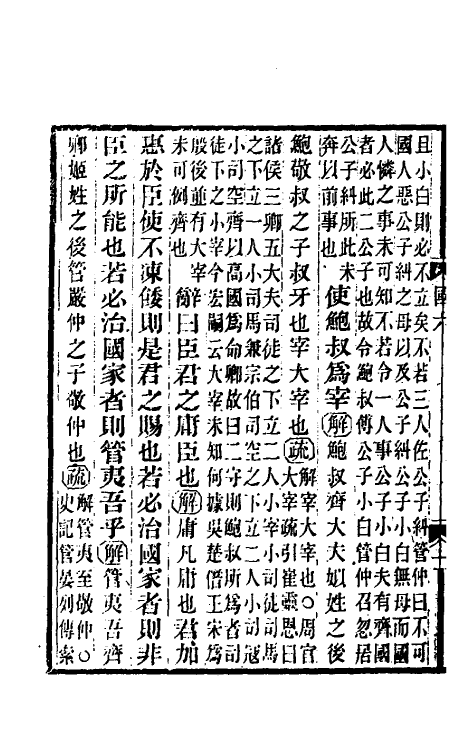 且小白則必不立矣不若三人佐公子糾管仲曰不可
國人惡公子糾之母以及公子糾公子小白無母而國
人憐之事未可知不若令一人事公子小白夫有齊國
者必此二公子也故令鮑叔傅公子小白管仲召忽居
公子糾所此未
奔以前事也
使鮑叔為宰解鮑叔齊大夫姒姓之後
鮑敬叔之子叔牙也宰大宰也疏
解宰大宰也○周官
大宰疏引崔靈恩曰
諸侯三卿五大夫司徒之下立二人小宰小司徒司馬
之下立一人小司馬兼宗伯司空之下立二人小司寇
小司空齊以高國為命卿故曰二守則鮑叔所為者司
徒下之小宰今宏嗣云大宰未知何據吳楚僭王宋為
殷後並有大宰
未可例齊也
辭曰臣君之庸臣也解庸凡庸也君加
惠於臣使不凍餒則是君之賜也若必治國家者則非
臣之所能也若必治國家者則管夷吾乎解管夷吾齊
卿姬姓之後管嚴仲之子敬仲也疏
解管夷至敬仲○
史記管晏列傳索
國六